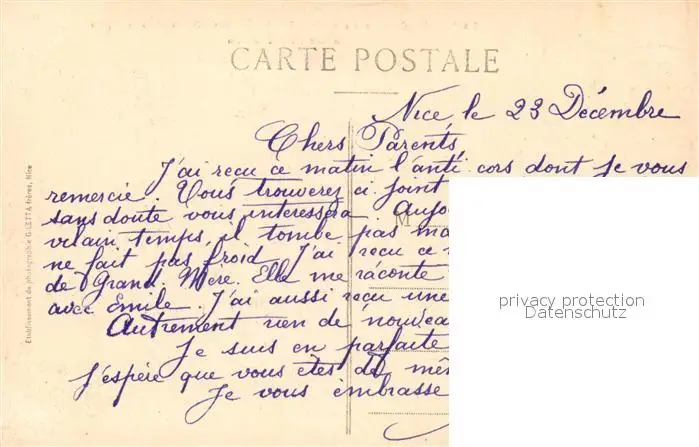 CARTE POSTALE
Nice le 23 Décembre
Chers Parents
J'ai reçu ce matin l'anti cors dont je vous
remercie. Vous trouverez ci joint
sans doute vous interessera. Aujo
vilain temps, il tombe pas ma
ne fait pas froid. J'ai reçu ce
de Grand. Mère. Elle me raconte
avec Emile. J'ai aussi reçu une
Autrement rien de nouvea
Je suis en parfaite
J'espère que vous êtes de mê
Je vous embrasse
Etablissement de photographie GILETTA frères, Nice
privacy protection
Datenschutz